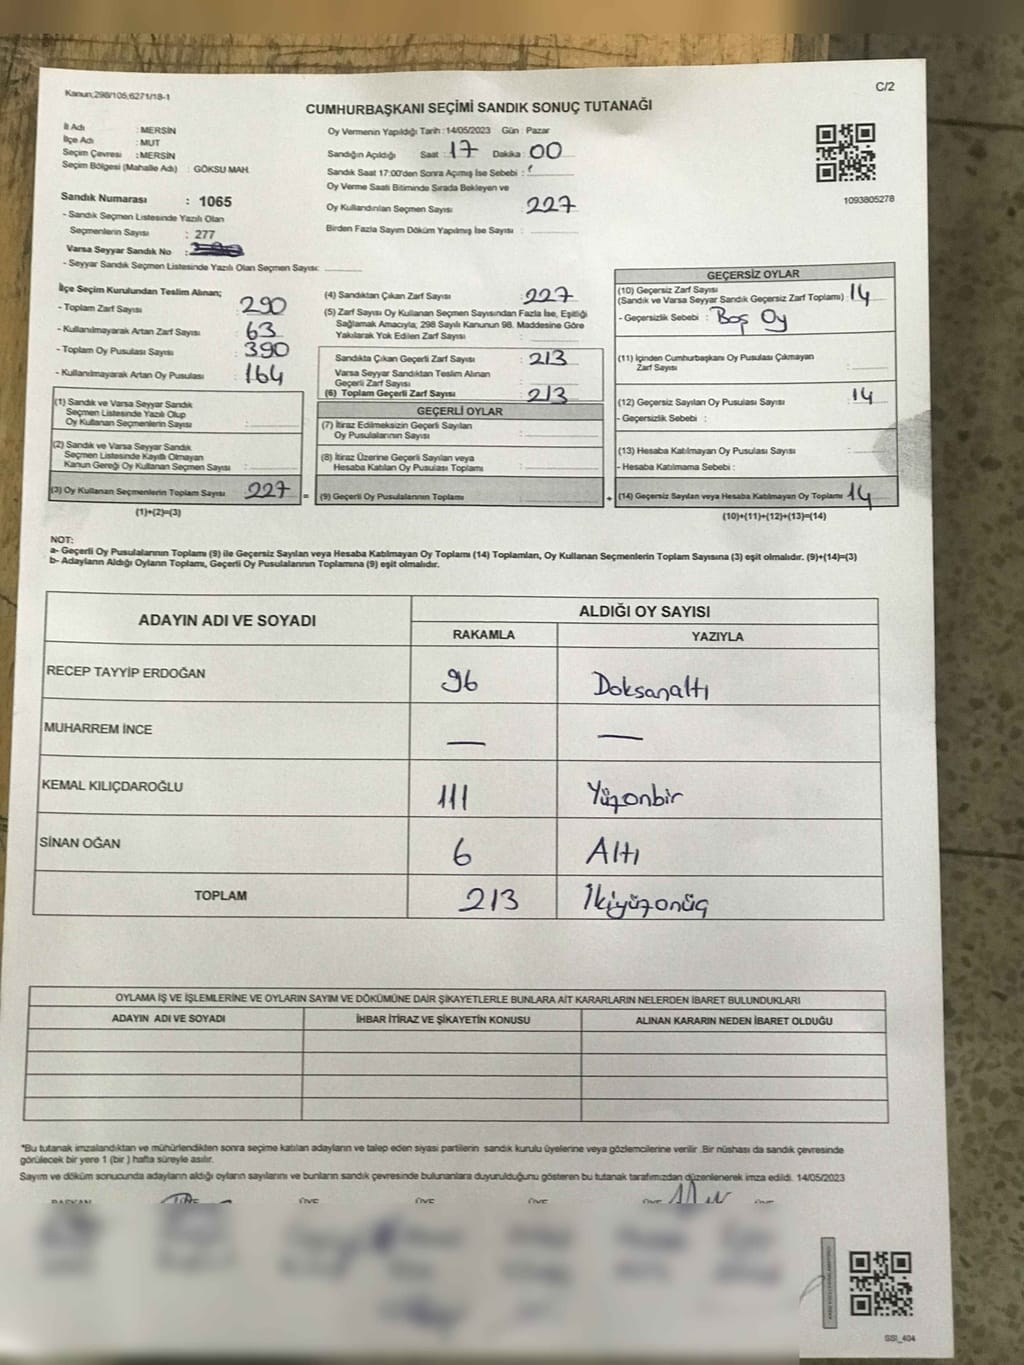 Kanun;298/105;6271/18-1
C/2
CUMHURBAŞKANI SEÇİMİ SANDIK SONUÇ TUTANAĞI
İl Adı : MERSİN
İlçe Adı : MUT
Seçim Çevresi : MERSİN
Seçim Bölgesi (Mahalle Adı) : GÖKSU MAH.
Sandık Numarası : 1065
- Sandık Seçmen Listesinde Yazılı Olan
Seçmenlerin Sayısı : 277
Varsa Seyyar Sandık No :
- Seyyar Sandık Seçmen Listesinde Yazılı Olan Seçmen Sayısı:
Oy Vermenin Yapıldığı Tarih : 14/05/2023 Gün : Pazar
Sandığın Açıldığı Saat : 17 Dakika : 00
Sandık Saat 17:00'den Sonra Açımış İse Sebebi :
Oy Verme Saati Bitiminde Sırada Bekleyen ve
Oy Kullandırılan Seçmen Sayısı : 227
Birden Fazla Sayım Döküm Yapılmış İse Sayısı :
1093805278
İlçe Seçim Kurulundan Teslim Alınan;
- Toplam Zarf Sayısı : 290
- Kullanılmayarak Artan Zarf Sayısı : 63
- Toplam Oy Pusulası Sayısı : 390
- Kullanılmayarak Artan Oy Pusulası : 164
(1) Sandık ve Varsa Seyyar Sandık
Seçmen Listesinde Yazılı Olup
Oy Kullanan Seçmenlerin Sayısı :
(2) Sandık ve Varsa Seyyar Sandık
Seçmen Listesinde Kayıtlı Olmayan
Kanun Gereği Oy Kullanan Seçmen Sayısı :
(3) Oy Kullanan Seçmenlerin Toplam Sayısı : 227 =
(1)+(2)=(3)
(4) Sandıktan Çıkan Zarf Sayısı : 227
(5) Zarf Sayısı Oy Kullanan Seçmen Sayısından Fazla İse, Eşitliği
Sağlamak Amacıyla; 298 Sayılı Kanunun 98. Maddesine Göre
Yakılarak Yok Edilen Zarf Sayısı :
Sandıkta Çıkan Geçerli Zarf Sayısı : 213
Varsa Seyyar Sandıktan Teslim Alınan
Geçerli Zarf Sayısı :
(6) Toplam Geçerli Zarf Sayısı : 213
GEÇERLİ OYLAR
(7) İtiraz Edilmeksizin Geçerli Sayılan
Oy Pusulalarının Sayısı :
(8) İtiraz Üzerine Geçerli Sayılan veya
Hesaba Katılan Oy Pusulası Toplamı :
(9) Geçerli Oy Pusulalarının Toplamı : +
GEÇERSİZ OYLAR
(10) Geçersiz Zarf Sayısı
(Sandık ve Varsa Seyyar Sandık Geçersiz Zarf Toplamı) : 14
- Geçersizlik Sebebi : Boş Oy
(11) İçinden Cumhurbaşkanı Oy Pusulası Çıkmayan
Zarf Sayısı :
(12) Geçersiz Sayılan Oy Pusulası Sayısı : 14
- Geçersizlik Sebebi :
(13) Hesaba Katılmayan Oy Pusulası Sayısı :
- Hesaba Katılmama Sebebi :
(14) Geçersiz Sayılan veya Hesaba Katılmayan Oy Toplamı : 14
(10)+(11)+(12)+(13)=(14)
NOT:
a- Geçerli Oy Pusulalarının Toplamı (9) ile Geçersiz Sayılan veya Hesaba Katılmayan Oy Toplamı (14) Toplamları, Oy Kullanan Seçmenlerin Toplam Sayısına (3) eşit olmalıdır. (9)+(14)=(3)
b- Adayların Aldığı Oyların Toplamı, Geçerli Oy Pusulalarının Toplamına (9) eşit olmalıdır.
ADAYIN ADI VE SOYADI ALDIĞI OY SAYISI
RAKAMLA YAZIYLA
RECEP TAYYİP ERDOĞAN 96 Doksanaltı
MUHARREM İNCE — —
KEMAL KILIÇDAROĞLU 111 Yüzonbir
SİNAN OĞAN 6 Altı
TOPLAM 213 İkiyüzonüç
OYLAMA İŞ VE İŞLEMLERİNE VE OYLARIN SAYIM VE DÖKÜMÜNE DAİR ŞİKAYETLERLE BUNLARA AİT KARARLARIN NELERDEN İBARET BULUNDUKLARI
ADAYIN ADI VE SOYADI İHBAR İTİRAZ VE ŞİKAYETİN KONUSU ALINAN KARARIN NEDEN İBARET OLDUĞU
*Bu tutanak imzalandıktan ve mühürlendikten sonra seçime katılan adayların ve talep eden siyasi partilerin sandık kurulu üyelerine veya gözlemcilerine verilir. Bir nüshası da sandık çevresinde
görülecek bir yere 1 (bir) hafta süreyle asılır.
Sayım ve döküm sonucunda adayların aldığı oyların sayılarını ve bunların sandık çevresinde bulunanlara duyurulduğunu gösteren bu tutanak tarafımızdan düzenlenerek imza edildi. 14/05/2023
BAŞKAN ÜYE ÜYE ÜYE ÜYE ÜYE
SSI_404